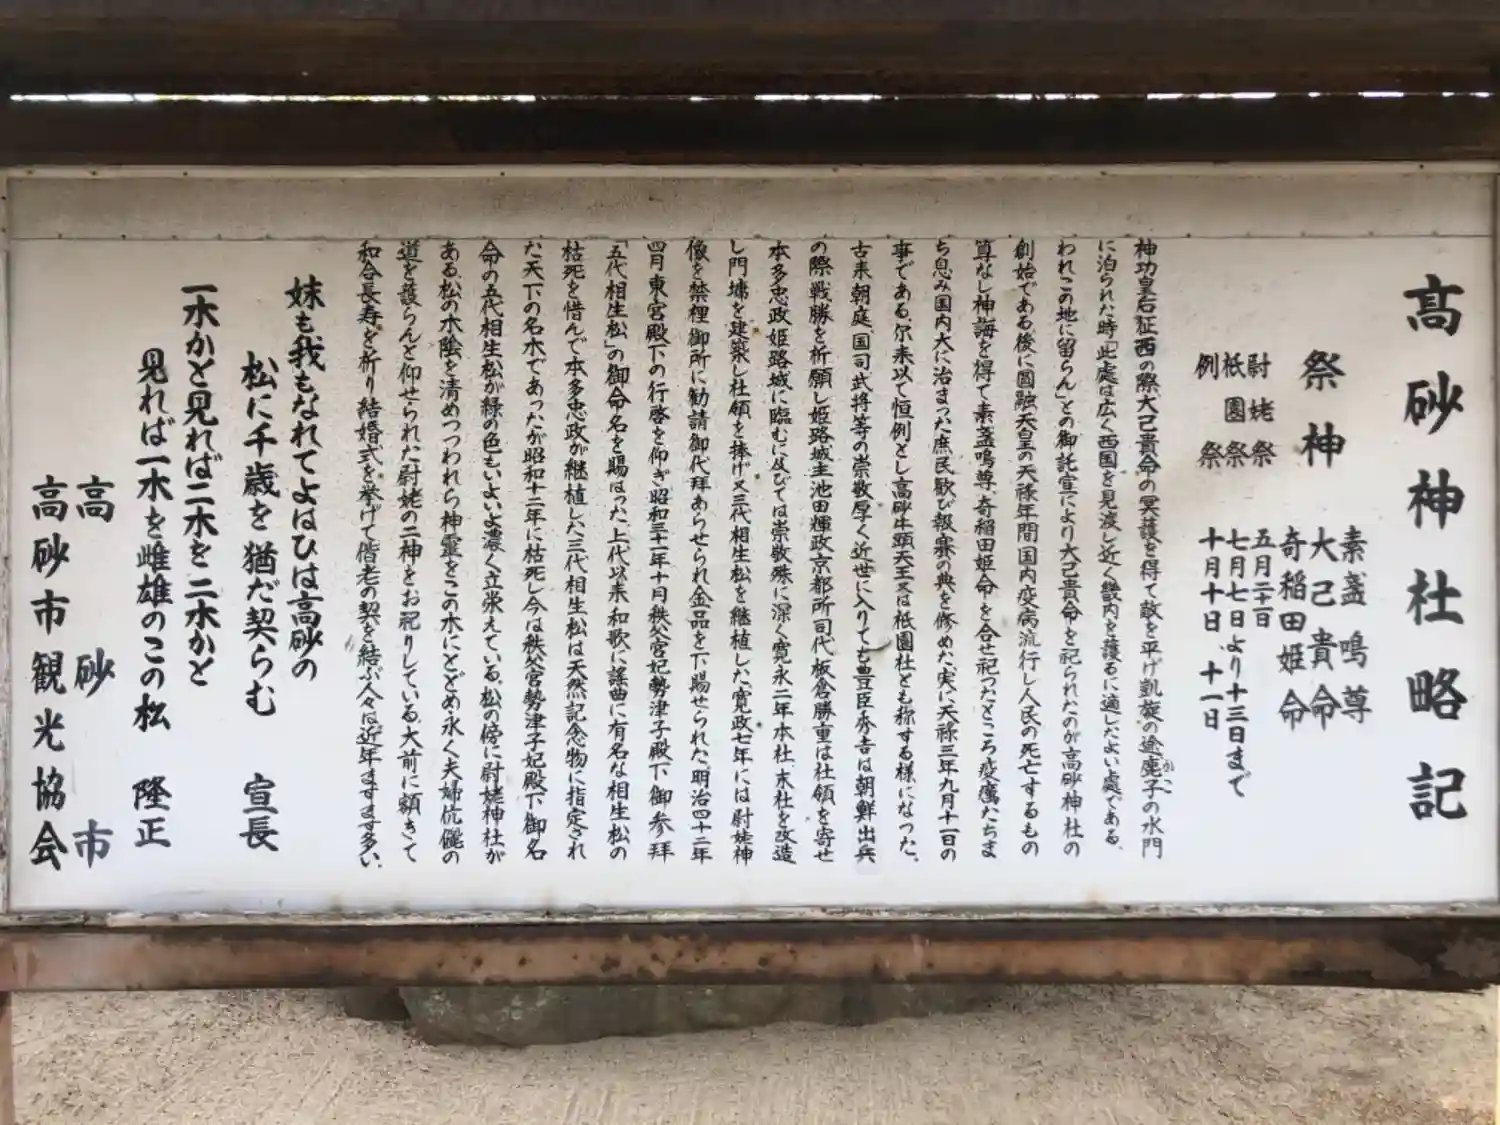 高砂神社略記
祭神
素盞鳴尊
大己貴命
奇稲田姫命
尉姥祭 五月二十一日
祇園祭 七月七日より十三日まで
例祭 十月十日、十一日
神功皇后征西の際大己貴命の冥護を得て敵を平げ凱旋の途鹿子の水門
かこ
に泊られた時「此處は広く西国を見渡し近く畿内を護るに適したよい處である、
われこの地に留らん」との御託宣により大己貴命を祀られたのが高砂神社の
創始である、後に圓融天皇の天禄年間国内疫病流行し人民の死亡するもの
算なし神誨を得て素盞鳴尊、奇稲田姫命を合せ祀つたところ疫癘たちま
ち息み国内大に治まつた庶民歓び報賽の典を修めた、実に天禄三年九月十一日の
事である、尓来以て恒例とし高砂牛頭天王又は祇園社とも称する様になつた、
古来朝庭、国司武将等の崇敬厚く近世に入りても豊臣秀吉は朝鮮出兵
の際戦勝を祈願し姫路城主池田輝政京都所司代板倉勝重は社領を寄せ
本多忠政姫路城に臨むに及びては崇敬殊に深く寛永二年本社、末社を改造
し門塀を建築し社領を捧げ又三代相生松を継植した、寛政七年には尉姥神
像を禁裡御所に勧請御代拜あらせられ金品を下賜せられた明治四十二年
四月東宮殿下の行啓を仰ぎ、昭和三十一年十月秩父宮妃勢津子殿下御参拜
「五代相生松」の御命名を賜はつた、上代以来和歌に謡曲に有名な相生松の
枯死を惜んで本多忠政が継植した三代相生松は天然記念物に指定され
た天下の名木であつたが昭和十二年に枯死し今は秩父宮勢津子妃殿下御名
命の五代相生松が緑の色もいよいよ濃く立栄えている、松の傍に尉姥神社が
ある、松の木陰を清めつつわれら神霊をこの木にとどめ永く夫婦伉儷の
道を護らんと仰せられた尉姥の二神をお祀りしている、大前に額きて
和合長寿を祈り結婚式を挙げて偕老の契を結ぶ人々は近年ますます多い、
妹も我もなれてよはひは高砂の
松に千歳を猶だ契らむ 宣長
一木かと見れば二木を二木かと
見れば一木を雌雄のこの松 隆正
高砂市
高砂市観光協会